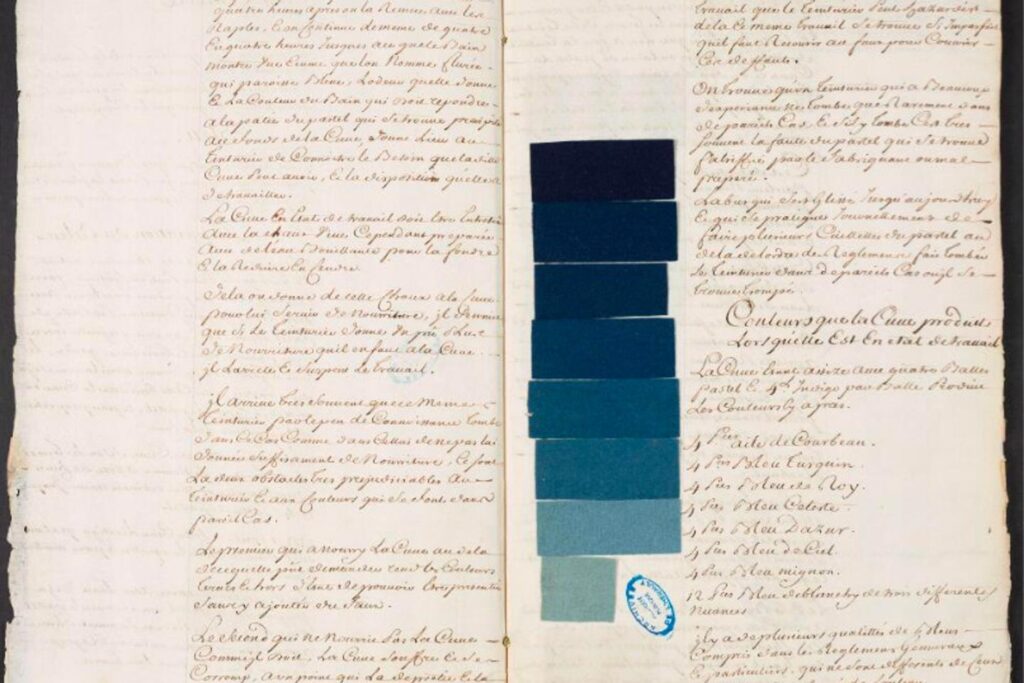 quatre heures apres on la Remue avec les
Rables, L'on Continue de meme de quatre
En quatre heures Jusques a ce que le Bain
montre une Ecume que l'on Nomme fleurée
qui paroisse Bleüe, L'odeur quelle donne
E La Couleur du Bain qui doit repondre
a la patée du pastel qui se trouve
au fonds de la Cuve, donne Lieu au
teinturier de Connoitre le Besoin que la
Cuve peut avoir, E la disposition quelle a
de travailler.
La Cuve En Etat de travail doit être
avec la chaux Vive Cependant preparée
avec de l'eau Bouillante pour la fondre
E la Reduire En
Cela on donne de cette Chaux a la Cuve
pour lui Servir de Nourriture, jl
que Si Le teinturier donne un peu plus
de Nourriture quil en faut a la Cuve
jl La
jl arrive tres Souvent que ce meme
teinturier par le peu de Connoissance tombe
dans ce Cas Comme dans Cellui de ne pas lui
donner Suffisament de Nourriture, Ce sont
La deux obstacles tres prejudiciables au
teinturier E aux Couleurs qui Se font dans
pareil Cas.
Le premier qui a Nourry La Cuve au dela
de ce quelle peut demander rend les Couleurs
E hors d'Etat de pouvoir
Sans y ajouter du faux.
Le Second qui ne Nourrit pas La Cuve
Comme jl doit, La Cuve Souffre E Se
Corromp, a un point que La E la
travail que le teinturier peut hazarder
de la Ce meme travail Se trouve Si Imparfait
quil faut Recourir au faux pour Couvrir
Ces deffauts.
On trouve qu'un teinturier qui a Beaucoup
d'experiance ne tombe que Rarement dans
de pareils Cas E S'il y tombe C'est tres
Souvent la faute du pastel qui Se trouve
falciffié par le fabriquant ou mal
preparé.
L'abus qui S'est Glissé Jusqu'aujourd'huy
E qui Se pratique Journellement de
faire plusieurs du pastel au
dela de l'ordre du Reglement fait tomber
Le teinturier dans de pareils Cas ou jl Se
trouve trompé.
Couleurs que la Cuve produit
Lorsquelle Est En etat de travail
La Cuve Etant assize avec quatre Balles
pastel E 4 Indigo par Balle
Les Couleurs Cy apres.
4 aile de Corbeau.
4 Bleu turquin.
4 Bleu de Roy.
4 Bleu Celeste.
4 Bleu D'azur.
4 Bleu de Ciel.
4 Bleu mignon.
12 Bleu de blanchy de trois differentes
Nuances
jl y a de plusieurs qualittés de
Compris dans les Reglements Generaux
E particuliers, qui ne sont differents de Ceux